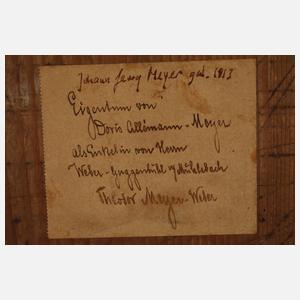 Johann Georg Meyer geb. 1813
Eigentum von
Doris Allemann-Meyer
als Enkelin von Herrn
Weber-Guggenbühl
Theodor Meyer-Weber